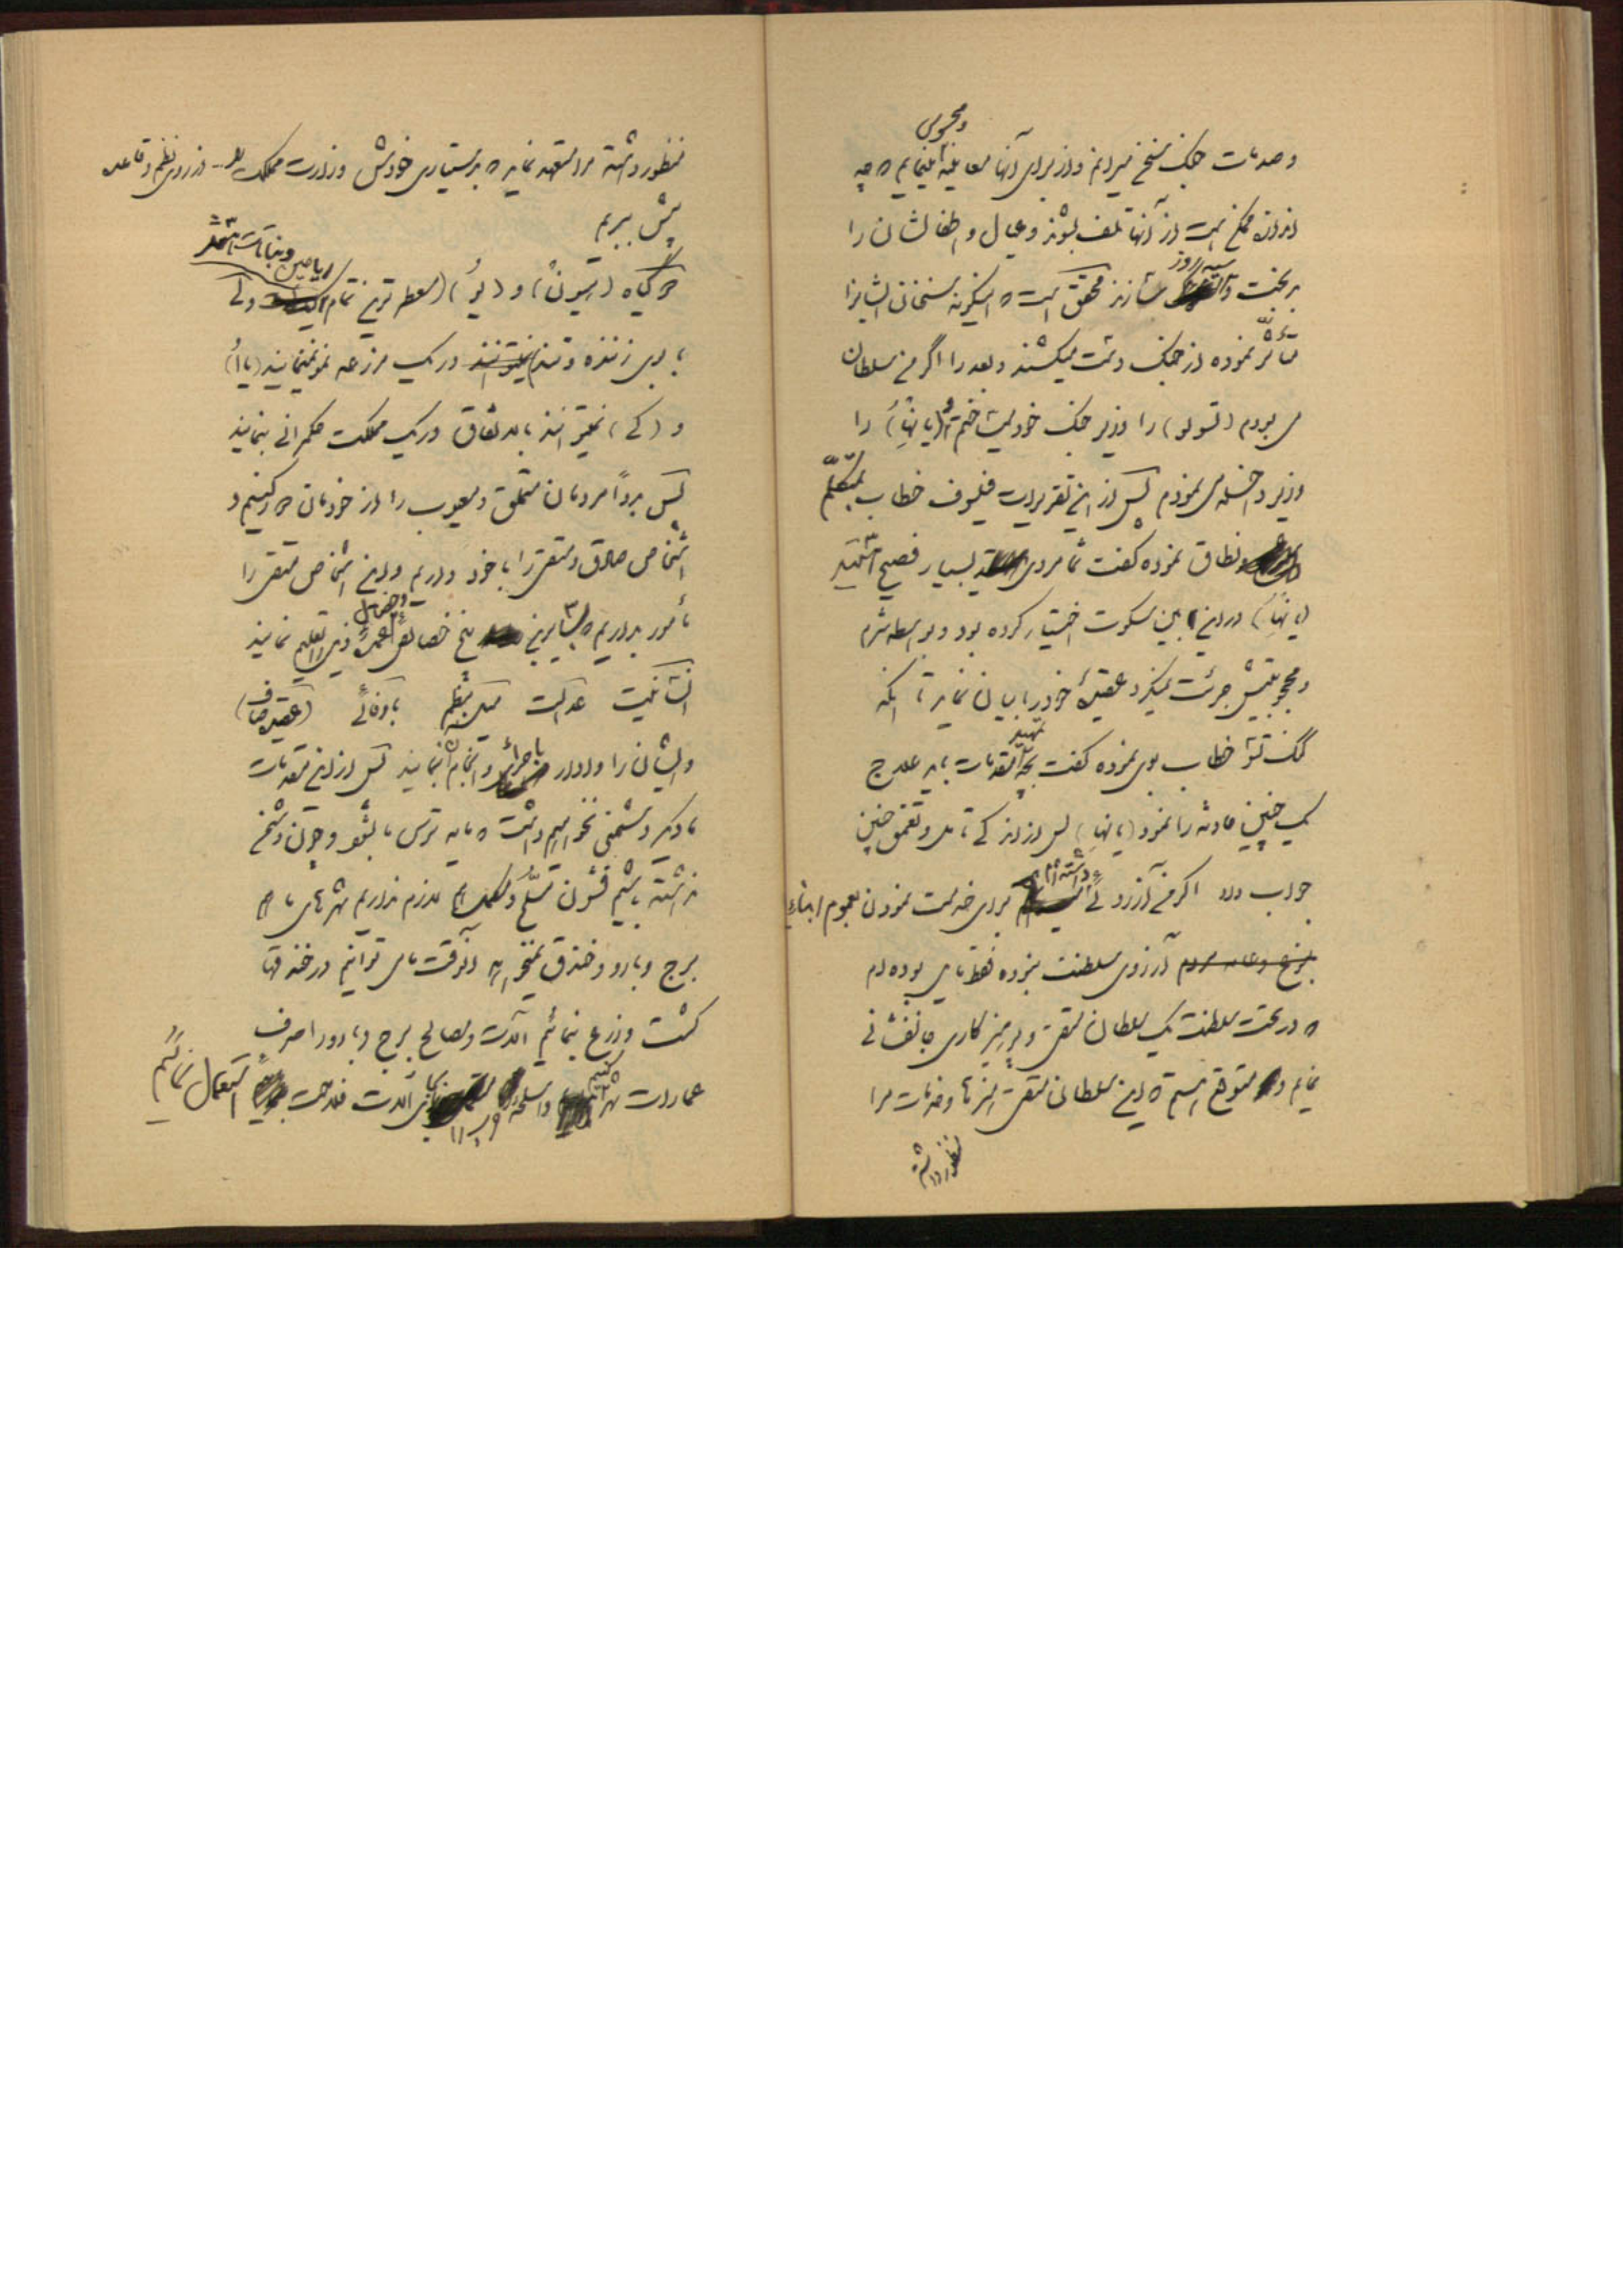 و صدمات جنگ سخن میرانم و از برای آنها معاینه و محسوس مینمایم که چه
اندازه ممکن است از آنها تلف بشوند و عیال و اطفالشان را
بدبخت و سیه روز بسازند محقق است که اینگونه سخنان ایشانرا
متأثر نموده از جنگ دست میکشند و بعد را اگر من سلطان
می بودم (تسولو) را وزیر جنگ خود میساختم و (یانها) را
وزیر داخله می نمودم پس از این تقریرات فیلسوف خطاب بمتکلم
و نطاق نموده گفت شما مردی بسیار فصیح هستید
(یانها) در این بین سکوت اختیار کرده بود و بواسطه شرم
و محجوبیتش جرئت نمیکرد عقیدهٔ خود را بیان نماید تا اینکه
کنگ تسو خطاب بوی نموده گفت بچه تمهید مقدمات باید علاج
یک چنین حادثه را نمود (یانها) پس از اندکی تأمل و تعمق چنین
جواب داد اگر من آرزوئی داشته ام برای خدمت نمودن بعموم ابناء
نوع و عامه مردم آرزوی سلطنت نبوده فقط مایل بوده ام
که در تحت سلطنت یک سلطان متقی و پرهیزکاری جانفشانی
نمایم و متوقع هستم که این سلطان متقی هنرها و خدمات مرا
منظور داشته
منظور داشته مرا متعهد نماید که بدستیاری خودش وزارت مملکت را از روی نظم و قاعده
پیش ببریم
گیاه (هیون) و (یو) (معطر ترین تمام ریاحین و نباتات هستند) ولی
با بوی زننده و تند در یک مزرعه نمو نمینمایند (یاأ)
و (کی) نمیتوانند بالاتفاق در یک مملکت حکمرانی بنمایند
پس بدواً مردمان متملق و معیوب را از خودمان دور کنیم و
اشخاص صادق و متقی را با خود داریم و این اشخاص متقی را
مأمور بداریم که بسایرین پنج خصائص و خصائل عمدهٔ ذیل را تعلیم نمایند
انسانیت عدالت میل بنظم باوفائی (عقیده صاف)
و ایشان را وادار باجراء و انجام آن بنمایند پس از این مقدمات
ما دیگر دشمنی نخواهیم داشت که مایه ترس ما بشود و چون دشمن
نداشته باشیم قشون مسلح و مکمل هم لازم نداریم شهرهای ما هم
برج و بارو و خندق نمیخواهد آنوقت ما می توانیم در خندقها
کشت و زرع بنمائیم آلات و مصالح برج و بارو را صرف
عمارات شهر کنیم و اسلحه را بجای آلات فلاحت استعمال نمائیم